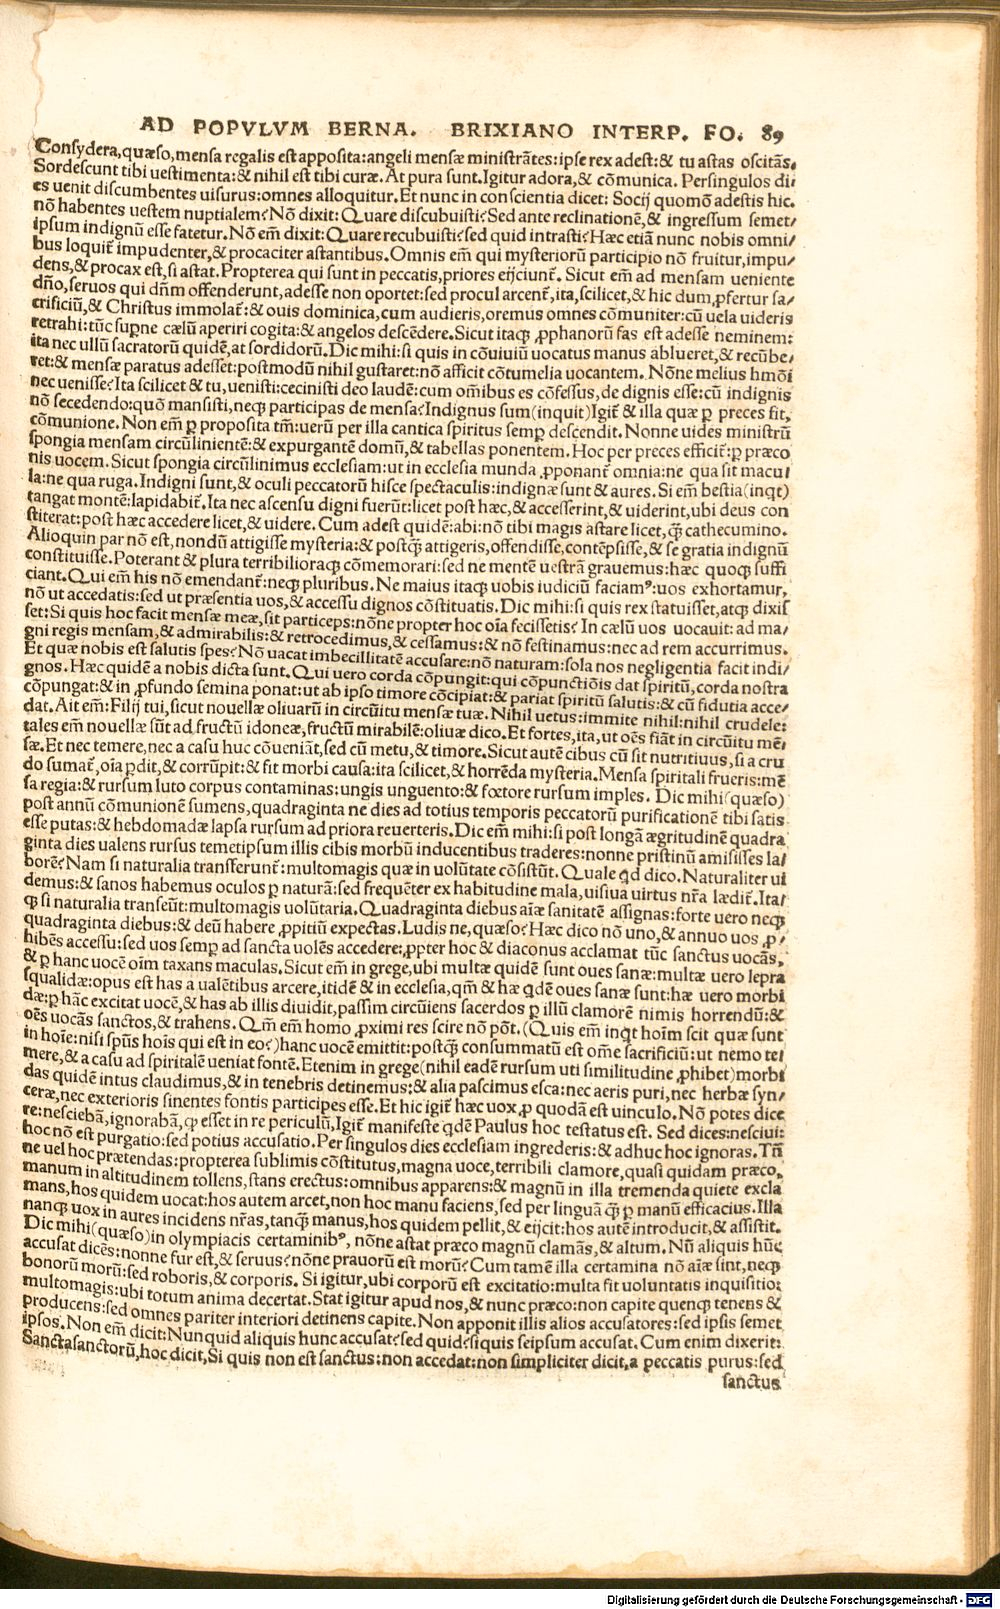 AD POPVLVM BERNA. BRIXIANO INTERP. FO. 89
Consydera,quæso,mensa regalis est apposita:angeli mensæ ministrãtes:ipse rex adest:& tu astas oscitãs.
Sordescunt tibi uestimenta:& nihil est tibi curæ. At pura sunt.Igitur adora,& cõmunica. Persingulos di/
es uenit discumbentes uisurus:omnes alloquitur.Et nunc in conscientia dicet: Socij quomõ adestis hic.
nõ habentes uestem nuptialem? Nõ dixit: Quare discubuisti? Sed ante reclinationẽ,& ingressum semet/
ipsum indignũ esse fatetur. Nõ em̃ dixit: Quare recubuisti? sed quid intrasti? Hæc etiã nunc nobis omni/
bus loquit̃ impudenter,& procaciter astantibus. Omnis em̃ qui mysteriorũ participio nõ fruitur,impu/
dens,& procax est,si astat. Propterea qui sunt in peccatis,priores eijciunt̃. Sicut em̃ ad mensam ueniente
dño,seruos qui dñm offenderunt,adesse non oportet:sed procul arcent̃,ita,scilicet,& hic dum,ꝓfertur sa/
crificiũ,& Christus immolat̃:& ouis dominica,cum audieris,oremus omnes cõmuniter:cũ uela uideris
retrahi:tũc supne cælũ aperiri cogita:& angelos descẽdere.Sicut itaqꝫ ꝓphanorũ fas est adesse neminem:
ita nec ullũ sacratorũ quidẽ,at sordidorũ. Dic mihi:si quis in cõuiuiũ uocatus manus ablueret,& recũbe/
ret:& mensæ paratus adesset:postmodũ nihil gustaret:nõ afficit cõtumelia uocantem. Nõne melius hmõi
nec uenisse? Ita scilicet & tu,uenisti:cecinisti deo laudẽ:cum om̃ibus es cõfessus,de dignis esse:cũ indignis
nõ secedendo:quõ mansisti,neqꝫ participas de mensa? Indignus sum(inquit)Igit̃ & illa quæ ꝑ preces fit,
cõmunione. Non em̃ ꝑ proposita tm̃:uerũ per illa cantica spiritus semꝑ descendit. Nonne uides ministrũ
spongia mensam circũlinientẽ:& expurgantẽ domũ,& tabellas ponentem. Hoc per preces efficit̃:ꝑ præco
nis uocem. Sicut spongia circũlinimus ecclesiam:ut in ecclesia munda ꝓponant̃ omnia:ne qua sit macu/
la:ne qua ruga. Indigni sunt,& oculi peccatorũ hisce spectaculis:indignæ sunt & aures. Si em̃ bestia(inqt)
tangat montẽ:lapidabit̃. Ita nec ascensu digni fuerũt:licet post hæc,& accesserint,& uiderint,ubi deus con
stiterat:post hæc accedere licet,& uidere. Cum adest quidẽ:abi:nõ tibi magis astare licet,q̃ cathecumino.
Alioquin par nõ est,nondũ attigisse mysteria:& postq̃ attigeris,offendisse,contẽpsisse,& se gratia indignũ
constituisse. Poterant & plura terribilioraqꝫ cõmemorari:sed ne mentẽ uestrã grauemus:hæc quoqꝫ suffi
ciant. Qui em̃ his nõ emendant̃:neqꝫ pluribus. Ne maius itaqꝫ uobis iudiciũ faciamꝰ:uos exhortamur,
nõ ut accedatis:sed ut præsentia uos,& accessu dignos cõstituatis. Dic mihi:si quis rex statuisset,atqꝫ dixis
set:Si quis hoc facit mensæ meæ,sit particeps:nõne propter hoc oĩa fecissetis? In cælũ uos uocauit: ad ma/
gni regis mensam,& admirabilis:& retrocedimus,& cessamus:& nõ festinamus:nec ad rem accurrimus.
Et quæ nobis est salutis spes? Nõ uacat imbecillitatẽ accusare:nõ naturam:sola nos negligentia facit indi/
gnos. Hæc quidẽ a nobis dicta sunt. Qui uero corda cõpungit:qui cõpunctiõis dat spiritũ,corda nostra
cõpungat:& in ꝓfundo semina ponat:ut ab ipso timore cõcipiat:& pariat spiritũ salutis:& cũ fidutia acce/
dat. Ait em̃: Filij tui,sicut nouellæ oliuarũ in circũitu mensæ tuæ. Nihil uetus:immite nihil:nihil crudele:
tales em̃ nouellæ sũt ad fructũ idoneæ,fructũ mirabilẽ:oliuæ dico. Et fortes,ita,ut oẽs fiãt in circũitu mẽ/
sæ. Et nec temere,nec a casu huc cõueniãt,sed cũ metu,& timore. Sicut autẽ cibus cũ sit nutritiuus,si a cru
do sumat̃,oĩa ꝑdit,& corrũpit:& fit morbi causa:ita scilicet,& horrẽda mysteria. Mensa spiritali frueris:mẽ
sa regia:& rursum luto corpus contaminas:ungis unguento:& fœtore rursum imples. Dic mihi(quæso)
post annũ cõmunionẽ sumens,quadraginta ne dies ad totius temporis peccatorũ purificationẽ tibi satis
esse putas:& hebdomadæ lapsa rursum ad priora reuerteris. Dic em̃ mihi:si post longã ægritudinẽ quadra
ginta dies ualens rursus temetipsum illis cibis morbũ inducentibus traderes:nonne pristinũ amisisses la/
borẽ? Nam si naturalia transferunt̃:multomagis quæ in uolũtate cõsistũt. Quale qd dico. Naturaliter ui
demus:& sanos habemus oculos ꝑ naturã:sed frequẽter ex habitudine mala,uisiua uirtus nr̃a lædit̃. Ita/
qꝫ si naturalia transeũt:multomagis uolũtaria. Quadraginta diebus aĩæ sanitatẽ assignas:forte uero neqꝫ
quadraginta diebus:& deũ habere ꝓpitiũ expectas. Ludis ne,quæso? Hæc dico nõ uno,& annuo uos ꝓ/
hibẽs accessu:sed uos semꝑ ad sancta uolẽs accedere:ꝓpter hoc & diaconus acclamat tũc sanctus uocãs,
& ꝑ hanc uocẽ oĩm taxans maculas. Sicut em̃ in grege,ubi multæ quidẽ sunt oues sanæ:multæ uero lepra
squalidæ:opus est has a ualẽtibus arcere,itidẽ & in ecclesia,qm̃ & hæ qdẽ oues sanæ sunt:hæ uero morbi
dæ:ꝑ hãc excitat uocẽ,& has ab illis diuidit,passim circũiens sacerdos ꝑ illũ clamorẽ nimis horrendũ:&
oẽs uocãs sanctos,& trahens. Qm̃ em̃ homo ꝓximi res scire nõ põt. (Quis em̃ inqt hoĩm scit quæ sunt
in hoĩe:nisi spũs hoĩs qui est in eo?)hanc uocẽ emittit:postq̃ consummatũ est om̃e sacrificiũ:ut nemo te/
mere,& a casu ad spiritalẽ ueniat fontẽ. Etenim in grege(nihil eadẽ rursum uti similitudine ꝓhibet)morbi
das quidẽ intus claudimus,& in tenebris detinemus:& alia pascimus esca:nec aeris puri,nec herbæ syn/
ceræ,nec exterioris sinentes fontis participes esse. Et hic igit̃ hæc uox,ꝑ quodã est uinculo. Nõ potes dice
re:nesciebã,ignorabã,ꝙ esset in re periculũ,Igit̃ manifeste qdẽ Paulus hoc testatus est. Sed dices:nesciui:
hoc nõ est purgatio:sed potius accusatio. Per singulos dies ecclesiam ingrederis:& adhuc hoc ignoras. Tñ
ne uel hoc prætendas:propterea sublimis cõstitutus,magna uoce,terribili clamore,quasi quidam præco,
manum in altitudinem tollens,stans erectus:omnibus apparens:& magnũ in illa tremenda quiete excla
mans,hos quidem uocat:hos autem arcet,non hoc manu faciens,sed per linguã q̃ ꝑ manũ efficacius. Illa
nanqꝫ uox in aures incidens nr̃as,tanqꝫ manus,hos quidem pellit,& eijcit:hos autẽ introducit,& assistit.
Dic mihi(quæso)in olympiacis certaminibꝰ, nõne astat præco magnũ clamãs,& altum. Nũ aliquis hũc
accusat dicẽs:nonne fur est,& seruus? nõne prauorũ est morũ? Cum tamẽ illa certamina nõ aĩæ sint,neqꝫ
bonorũ morũ:sed roboris,& corporis. Si igitur,ubi corporũ est excitatio:multa fit uoluntatis inquisitio:
multomagis:ubi totum anima decertat. Stat igitur apud nos,& nunc præco:non capite quenqꝫ tenens &
producens:sed omnes pariter interiori detinens capite. Non apponit illis alios accusatores:sed ipsis semet
ipsos. Non em̃ dicit: Nunquid aliquis hunc accusat? sed quid? siquis seipsum accusat. Cum enim dixerit:
Sancta sanctorũ,hoc dicit,Si quis non est sanctus:non accedat:non simpliciter dicit,a peccatis purus:sed
sanctus
Digitalisierung gefördert durch die Deutsche Forschungsgemeinschaft - DFG